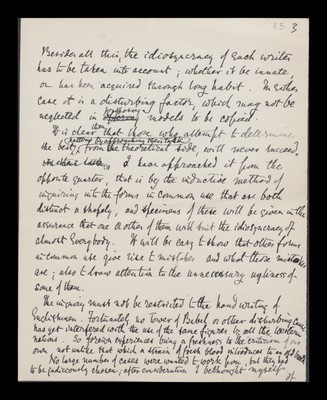 85 3
Besides all this, the idiosyncracy of each writer
has to be taken into account; whether it be innate
or has been acquired through long habit. In either
case it is a disturbing factor, which may not be
neglected in offering models to be copied.
It is clear that those who attempt to determine
the best, from the theoretical side will never succeed
I have approached it from the
opposite quarter, that is by the inductive method of
inquiring into the forms in common use that are both
distinct & shapely, and specimens of these will be given in the
assurance that one or other of them will suit the idiosyncracy of
almost everybody. It will be easy to show that other forms
in common use give rise to mistakes and what those mistakes
are; also to draw attention to the unnecessary ugliness of
some of them.
The inquiry must not be restricted to the handwriting of
Englishmen. Fortunately no Tower of Babel or other disturbing cause
has yet interfered with the use of the same figures by all the Western
nations. So foreign experiences bring a freshness to the criticism of our
own, not unlike that which a strain of fresh blood introduces to an old
No large number of cases were wanted to work from, but they had
to be judiciously chosen; after consideration I bethought myself
of